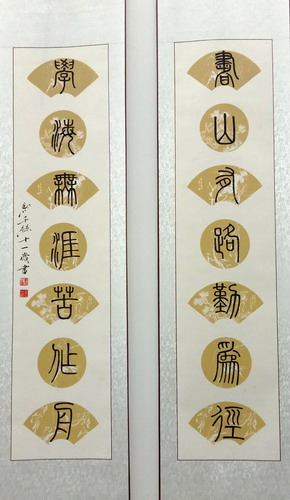 書山有路勤為徑
學海無涯苦作舟
十一歲書